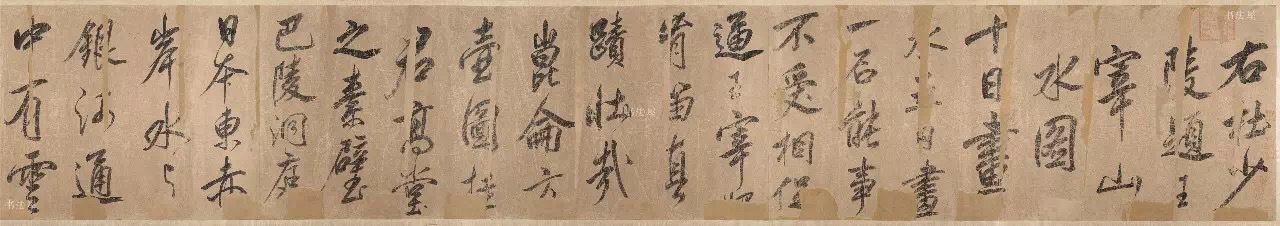 右杜少
陵題王
宰山
水圖
十日畫
水五日畫
一石能事
不受相促
逼王宰始
肯留真
蹟壯哉
崑崙方
壺圖挂
君高堂
之素壁
巴陵洞庭
日本東赤
岸水与
銀河通
中有雲
书法屋
书法屋
书法屋